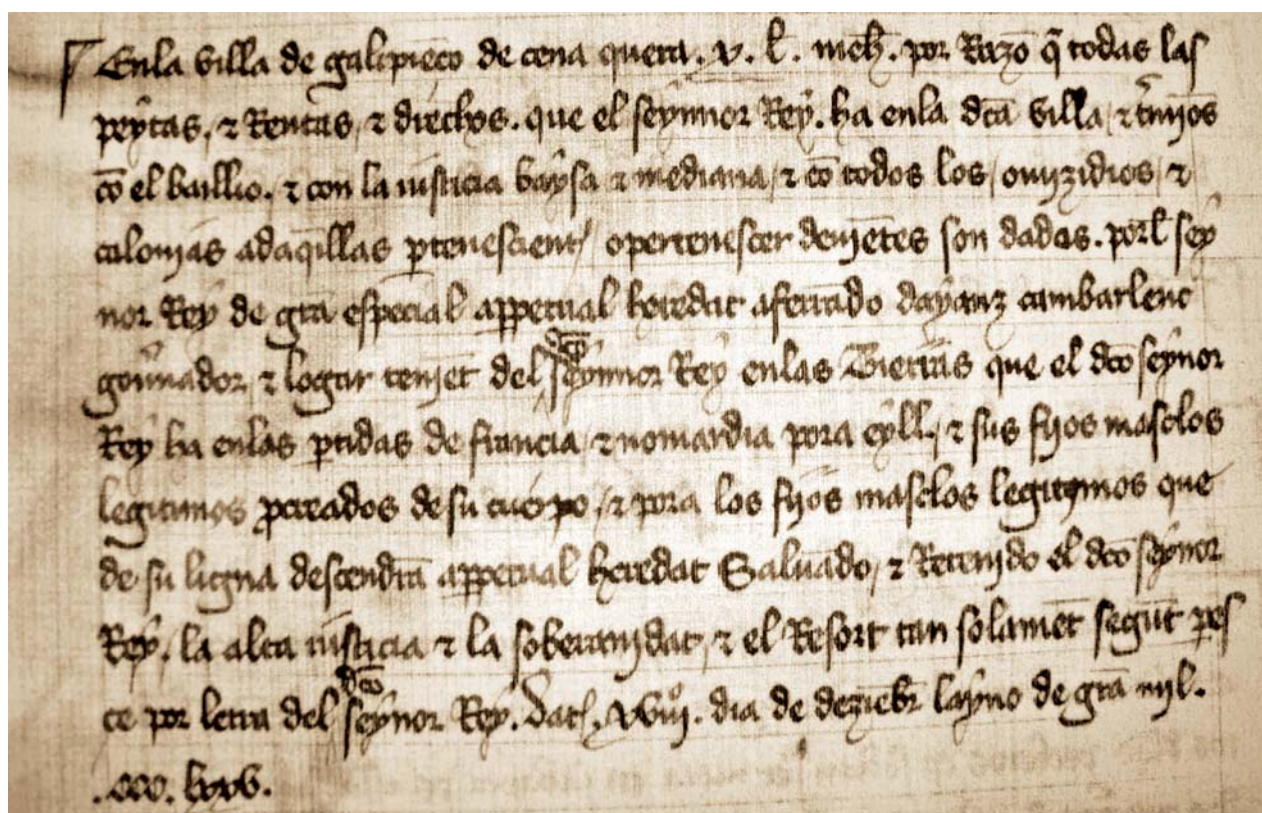 Enla villa de galipieço de cena quera. v. l. meh. por Razō q̄ todas las
peytas, ⁊ Rentas, ⁊ diēchos. que el seynnor Rey. ha enla dc̄a villa, ⁊ t̄mjos
cō el baillio. ⁊ con la iusticia baysa ⁊ mediana, ⁊ cō todos los, omjzidios, ⁊
calonjas adaqīllas ꝑtenescient, opertenescer deujētes son dadas. porl sey
nor Rey de grā especial appetual heredat aferrādo dayanz cambarlenc
goūnador, ⁊ logar teniēt del dc̄o seynnor Rey enlas Tierras que el dc̄o seynor
Rey ha enlas ꝑtidas de francia, ⁊ normardia pora eyll, ⁊ sus fijos masclos
legitimos ꝓcreados de su cuerpo, ⁊ pora los fijos masclos legitjmos que
de su ligna descendrā appetual heredat Saluādo, ⁊ Retenjdo el dc̄o seynor
Rey, la alta iusticia ⁊ la soberanjdat, ⁊ el Resort tan solamēt segūt ꝑes
ce por letra del dc̄o seynor Rey. Dat. xviijº. dia de deziēbr layno de grā mil.
.ccc. lxxv.